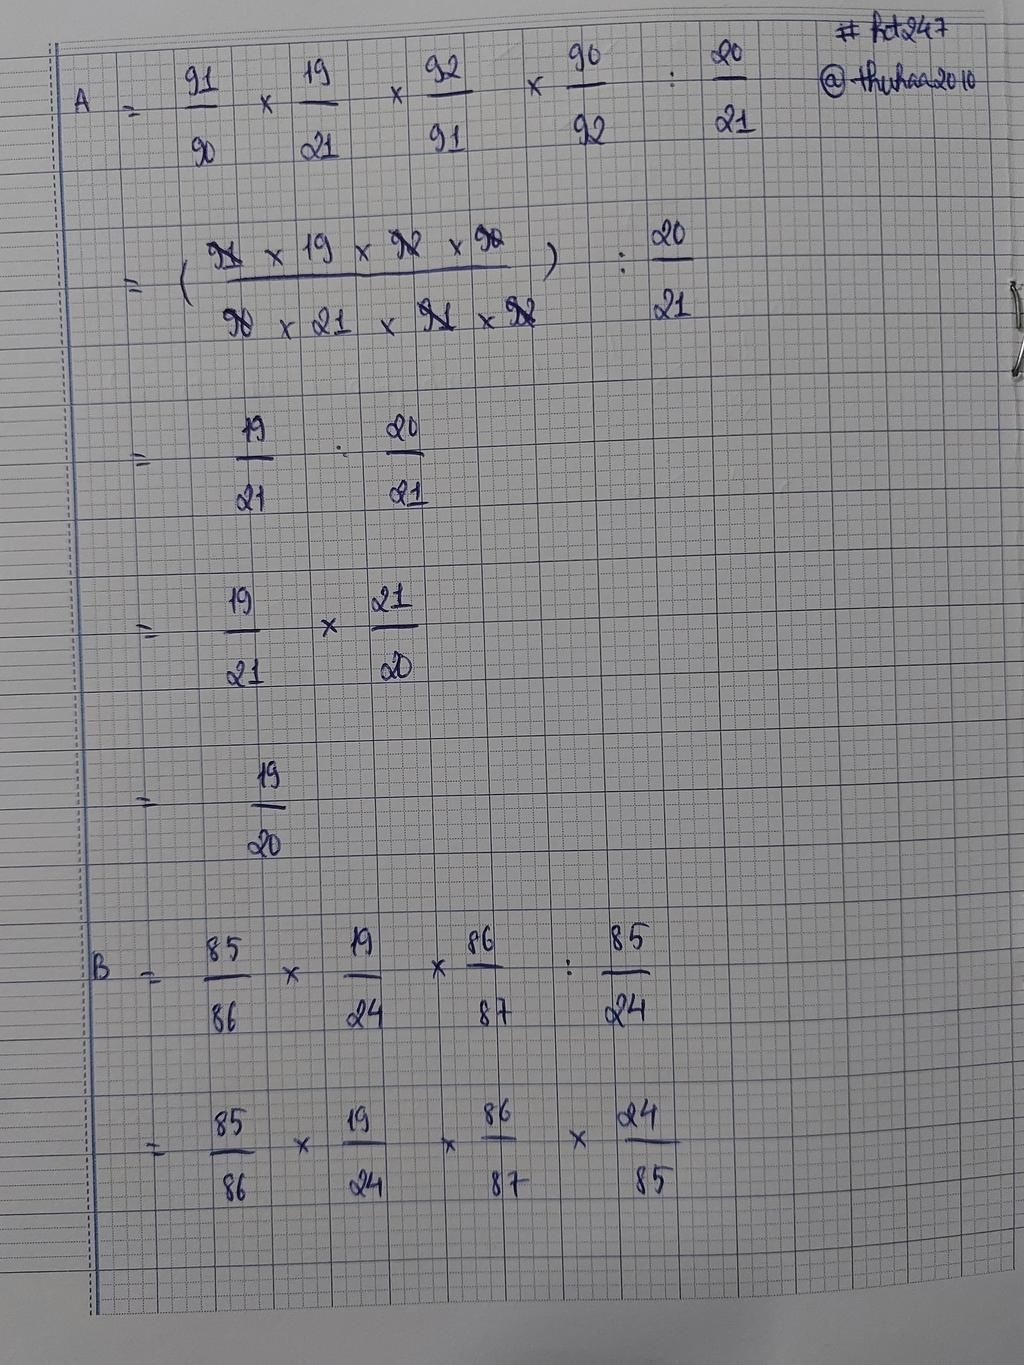 # hd247
@thuhaa2010
A = 91/90 × 19/21 × 92/91 × 90/92 : 20/21
= ( 91 × 19 × 92 × 90 / 90 × 21 × 91 × 92 ) : 20/21
= 19/21 : 20/21
= 19/21 × 21/20
= 19/20
B = 85/86 × 19/24 × 86/87 : 85/24
= 85/86 × 19/24 × 86/87 × 24/85